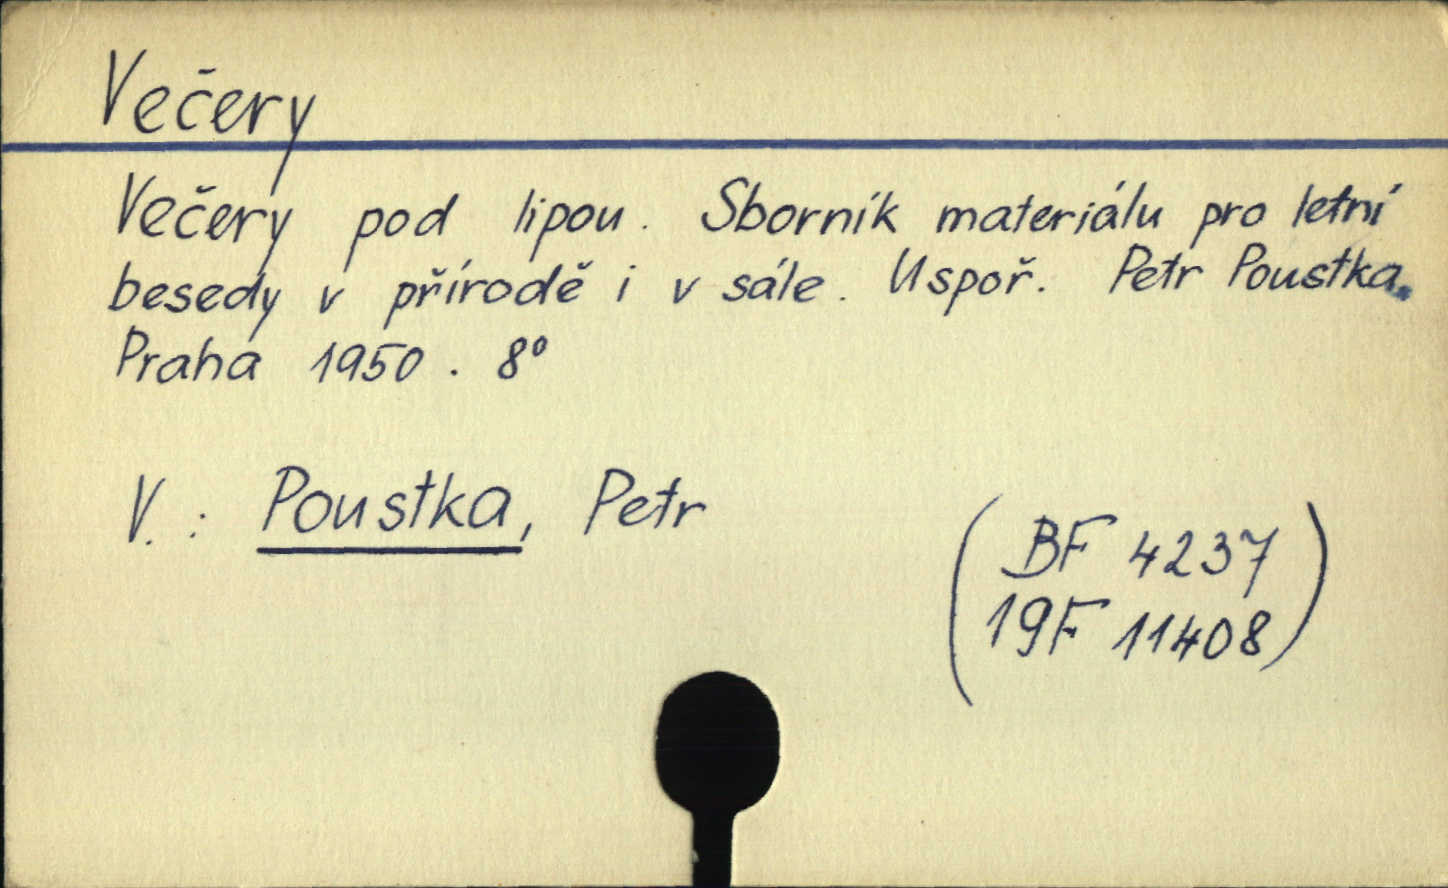 Večery
Večery pod lipou. Sborník materiálu pro letní
besedy v přírodě i v sále. Uspoř. Petr Poustka.
Praha 1950. 8°
V. : Poustka, Petr
(BF 4237
19F 11408)